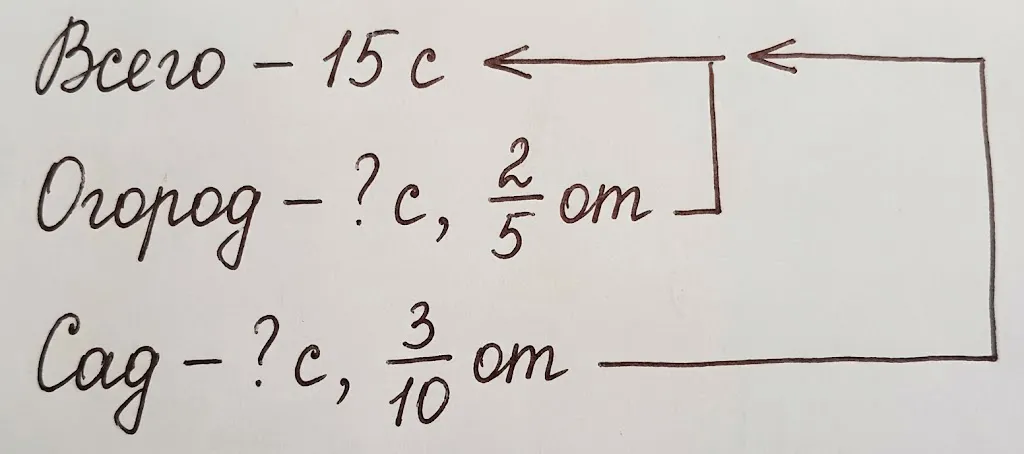 Всего – 15 с
Огород – ? с, 2/5 от
Сад – ? с, 3/10 от